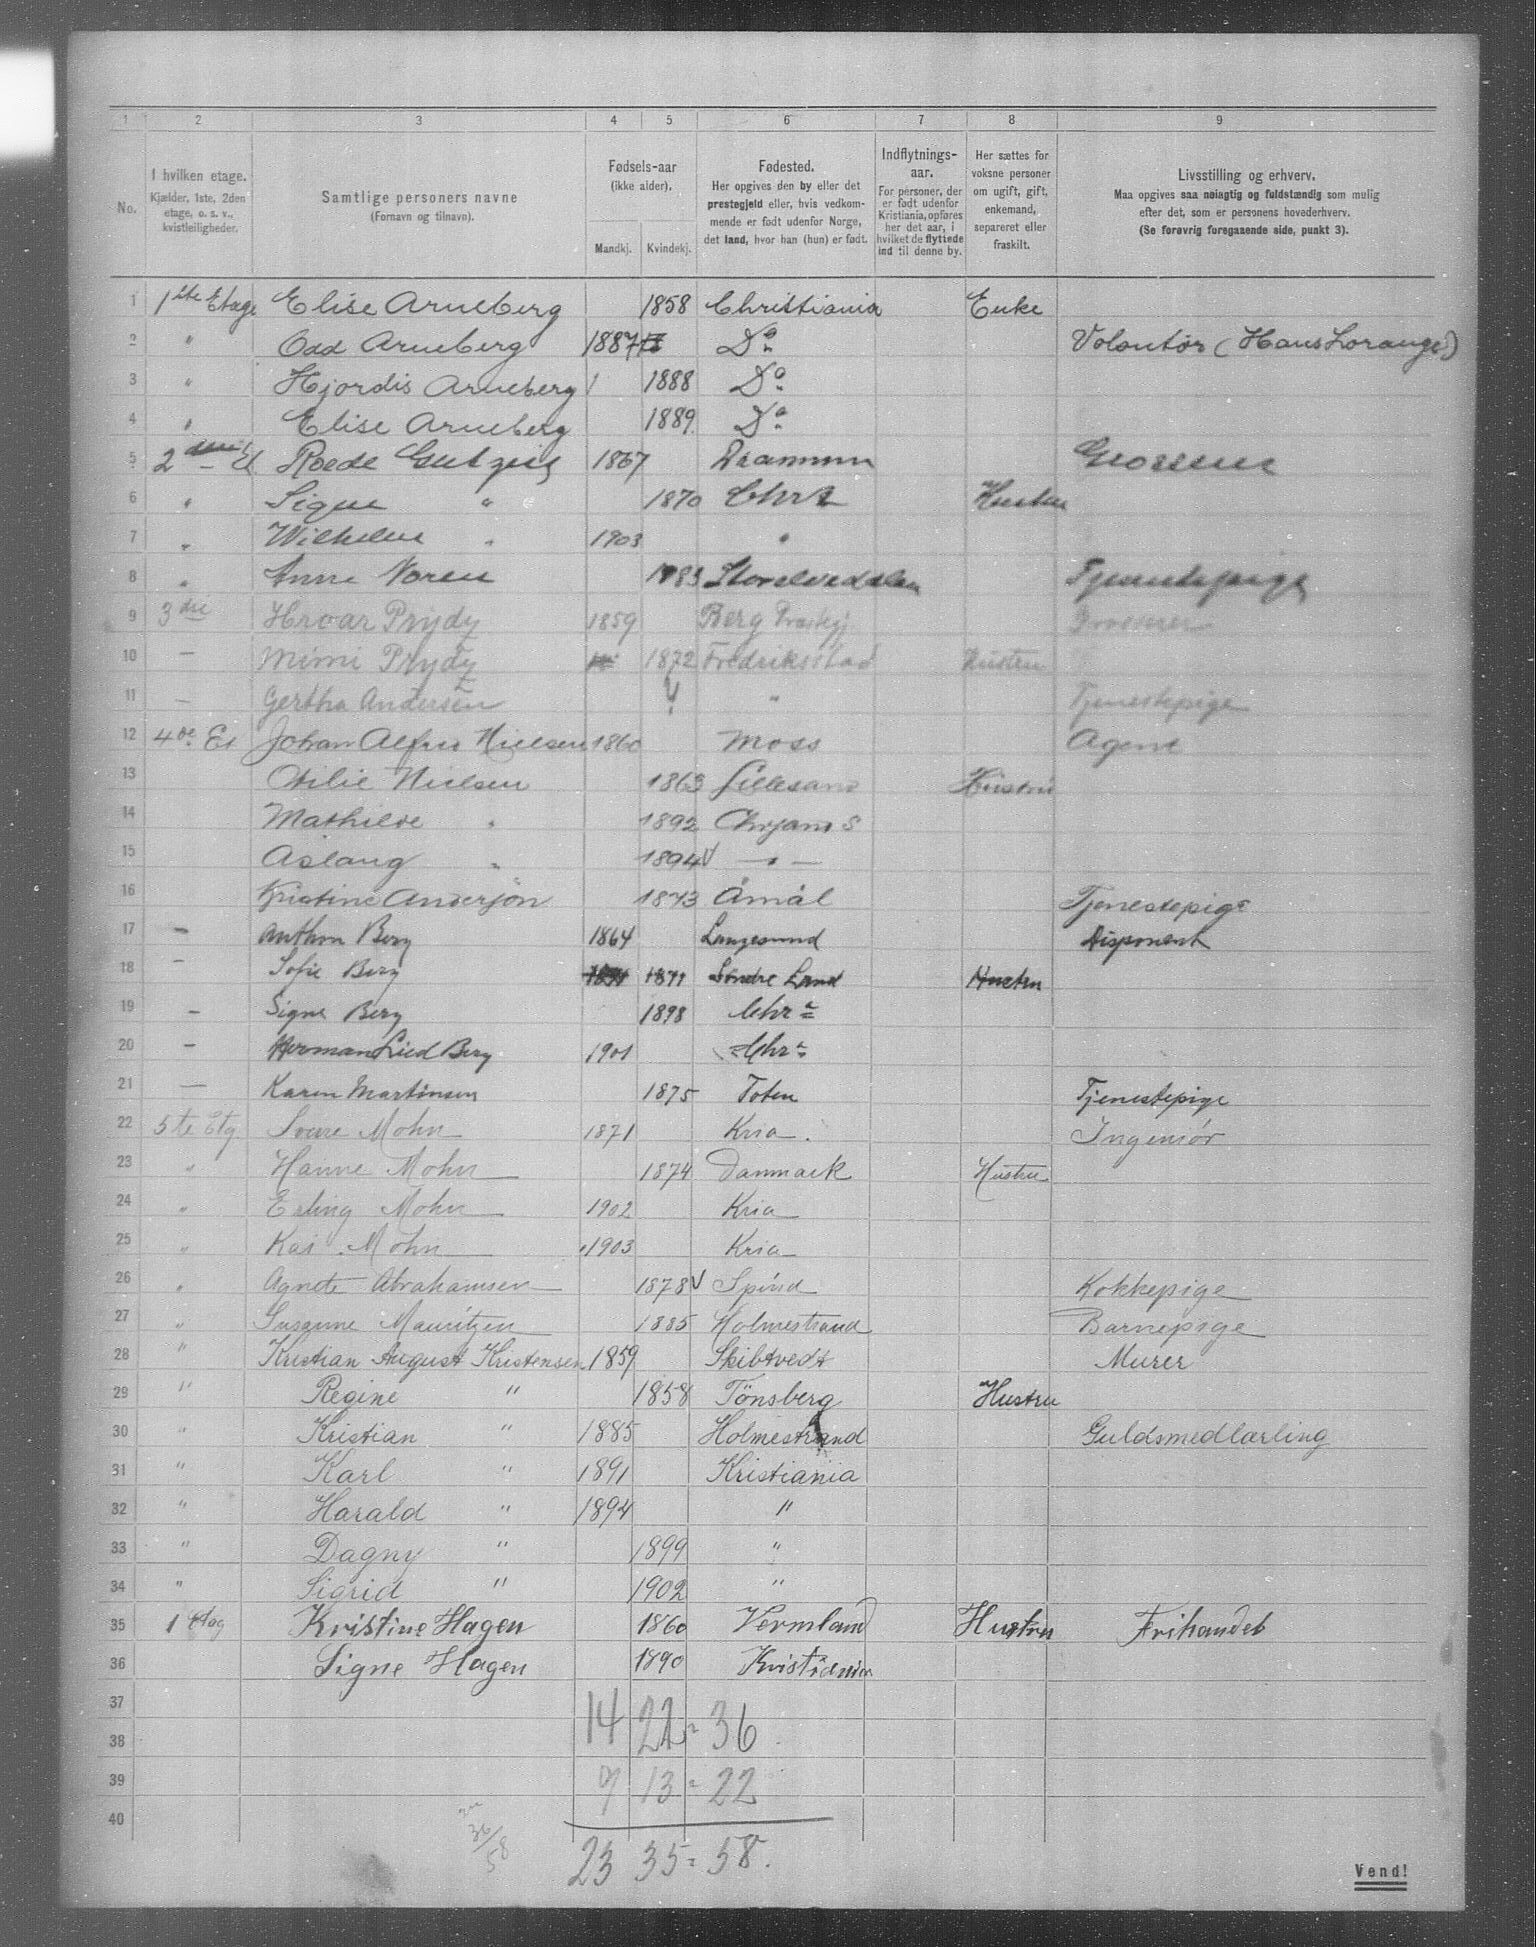 1 2 3 4 5 6 7 8 9
No.
I hvilken etage. Kjælder, 1ste, 2den etage, o. s. v., kvistleiligheder.
Samtlige personers navne (Fornavn og tilnavn).
Fødsels-aar (ikke alder). Mandkj. Kvindekj.
Fødested. Her opgives den by eller det prestegjeld eller, hvis vedkommende er født udenfor Norge, det land, hvor han (hun) er født.
Indflytnings-aar. For personer, der er født udenfor Kristiania, opføres her det aar, i hvilket de flyttede ind til denne by.
Her sættes for voksne personer om ugift, gift, enkemand, separeret eller fraskilt.
Livsstilling og erhverv. Maa opgives saa nøiagtig og fuldstændig som mulig efter det, som er personens hovederhverv. (Se forøvrig foregaaende side, punkt 3).
1 1ste Etage Elise Arneberg 1858 Christiania Enke
2 " Odd Arneberg 1887 Do Volontør (Hans Lorange)
3 " Hjordis Arneberg 1888 Do
4 " Elise Arneberg 1889 Do
5 2 Et Roede 1867 Drammen Grosserer
6 " Signe " 1870 Chra Hustru
7 " Wilhelm " 1903 "
8 " Anne Noren 1883 Tjenestepige
9 3die Hroar Prydz 1859 Berg Præstgj Grosserer
10 — Mimi Prydz 1872 Fredriksstad Hustru
11 — Gertha Andersen ? " Tjenestepige
12 4de Et Johan Alfred Nielsen 1860 Moss Agent
13 Otilie Nielsen 1863 Lillesand Hustru
14 Mathilde " 1892 Chrjania S
15 Aslaug " 1894 V — " —
16 Kristine Anderson 1873 Åmål Tjenestepige
17 — Anthon Berg 1864 Langesund Disponent
18 — Sofie Berg 1871 Søndre Land Hustru
19 — Signe Berg 1898 Chra
20 — Herman Lied Berg 1901 Chra
21 — Karen Martinsen 1875 Toten Tjenestepige
22 5te Etg. Sverre Mohn 1871 Kria. Ingeniør
23 " Hanne Mohn 1874 Danmark Hustru
24 " Erling Mohn 1902 Kria
25 " Kai Mohn 1903 Kria
26 " Agnete Abrahamsen 1878 V Spind Kokkepige
27 " Susanne Mauritzen 1885 Holmestrand Barnepige
28 " Kristian August Kristensen 1859 Skibtvedt Murer
29 " Regine " 1858 Tønsberg Hustru
30 " Kristian " 1885 Holmestrand Guldsmedlærling
31 " Karl " 1891 Kristiania
32 " Harald " 1894 "
33 " Dagny " 1899 "
34 " Sigrid " 1902 "
35 1 etag Kristine Hagen 1860 Vermland Hustru Frihandel
36 Signe Hagen 1890 Kristiania
37
38 14 22 = 36
39 9 13 = 22
40
36/58
23 35 = 58.
Vend!